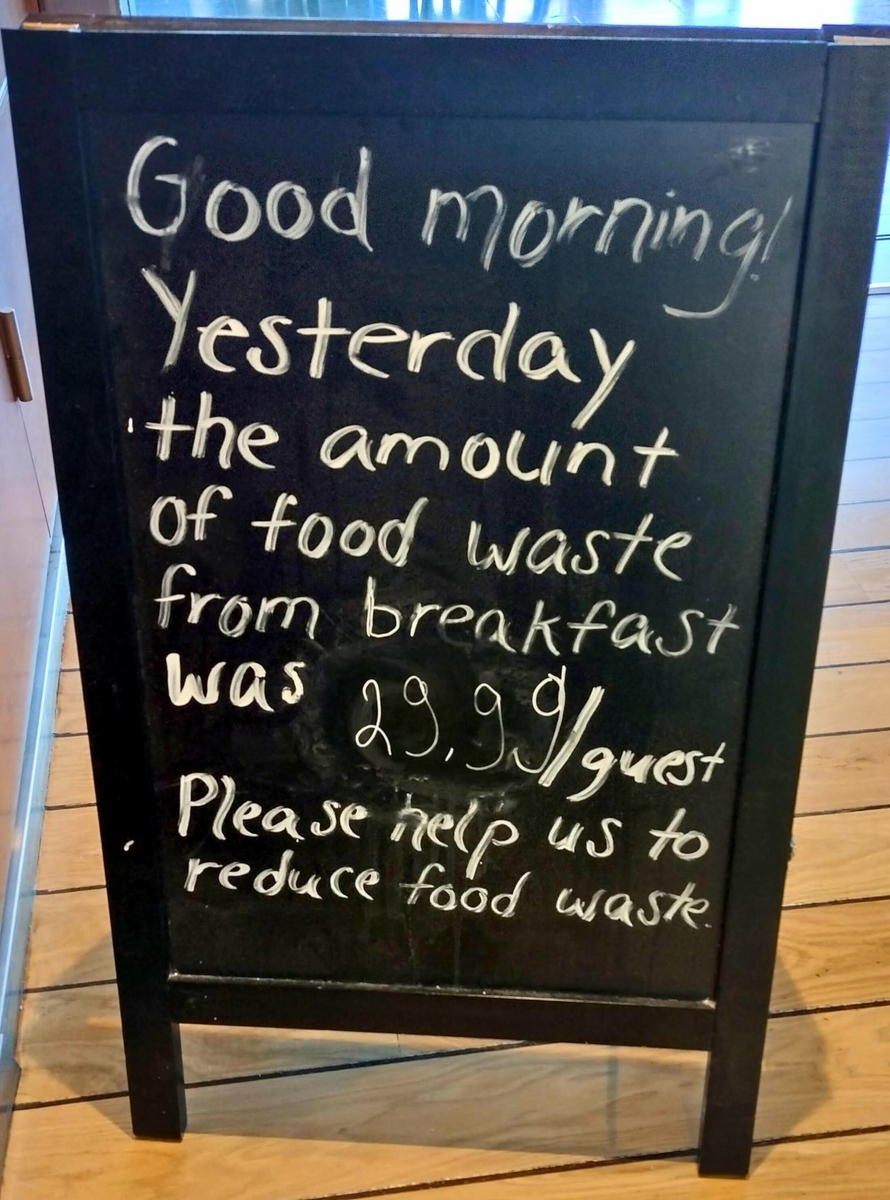 Good morning!
Yesterday
the amount
of food waste
from breakfast
was 29,9g/guest
Please help us to
reduce food waste.